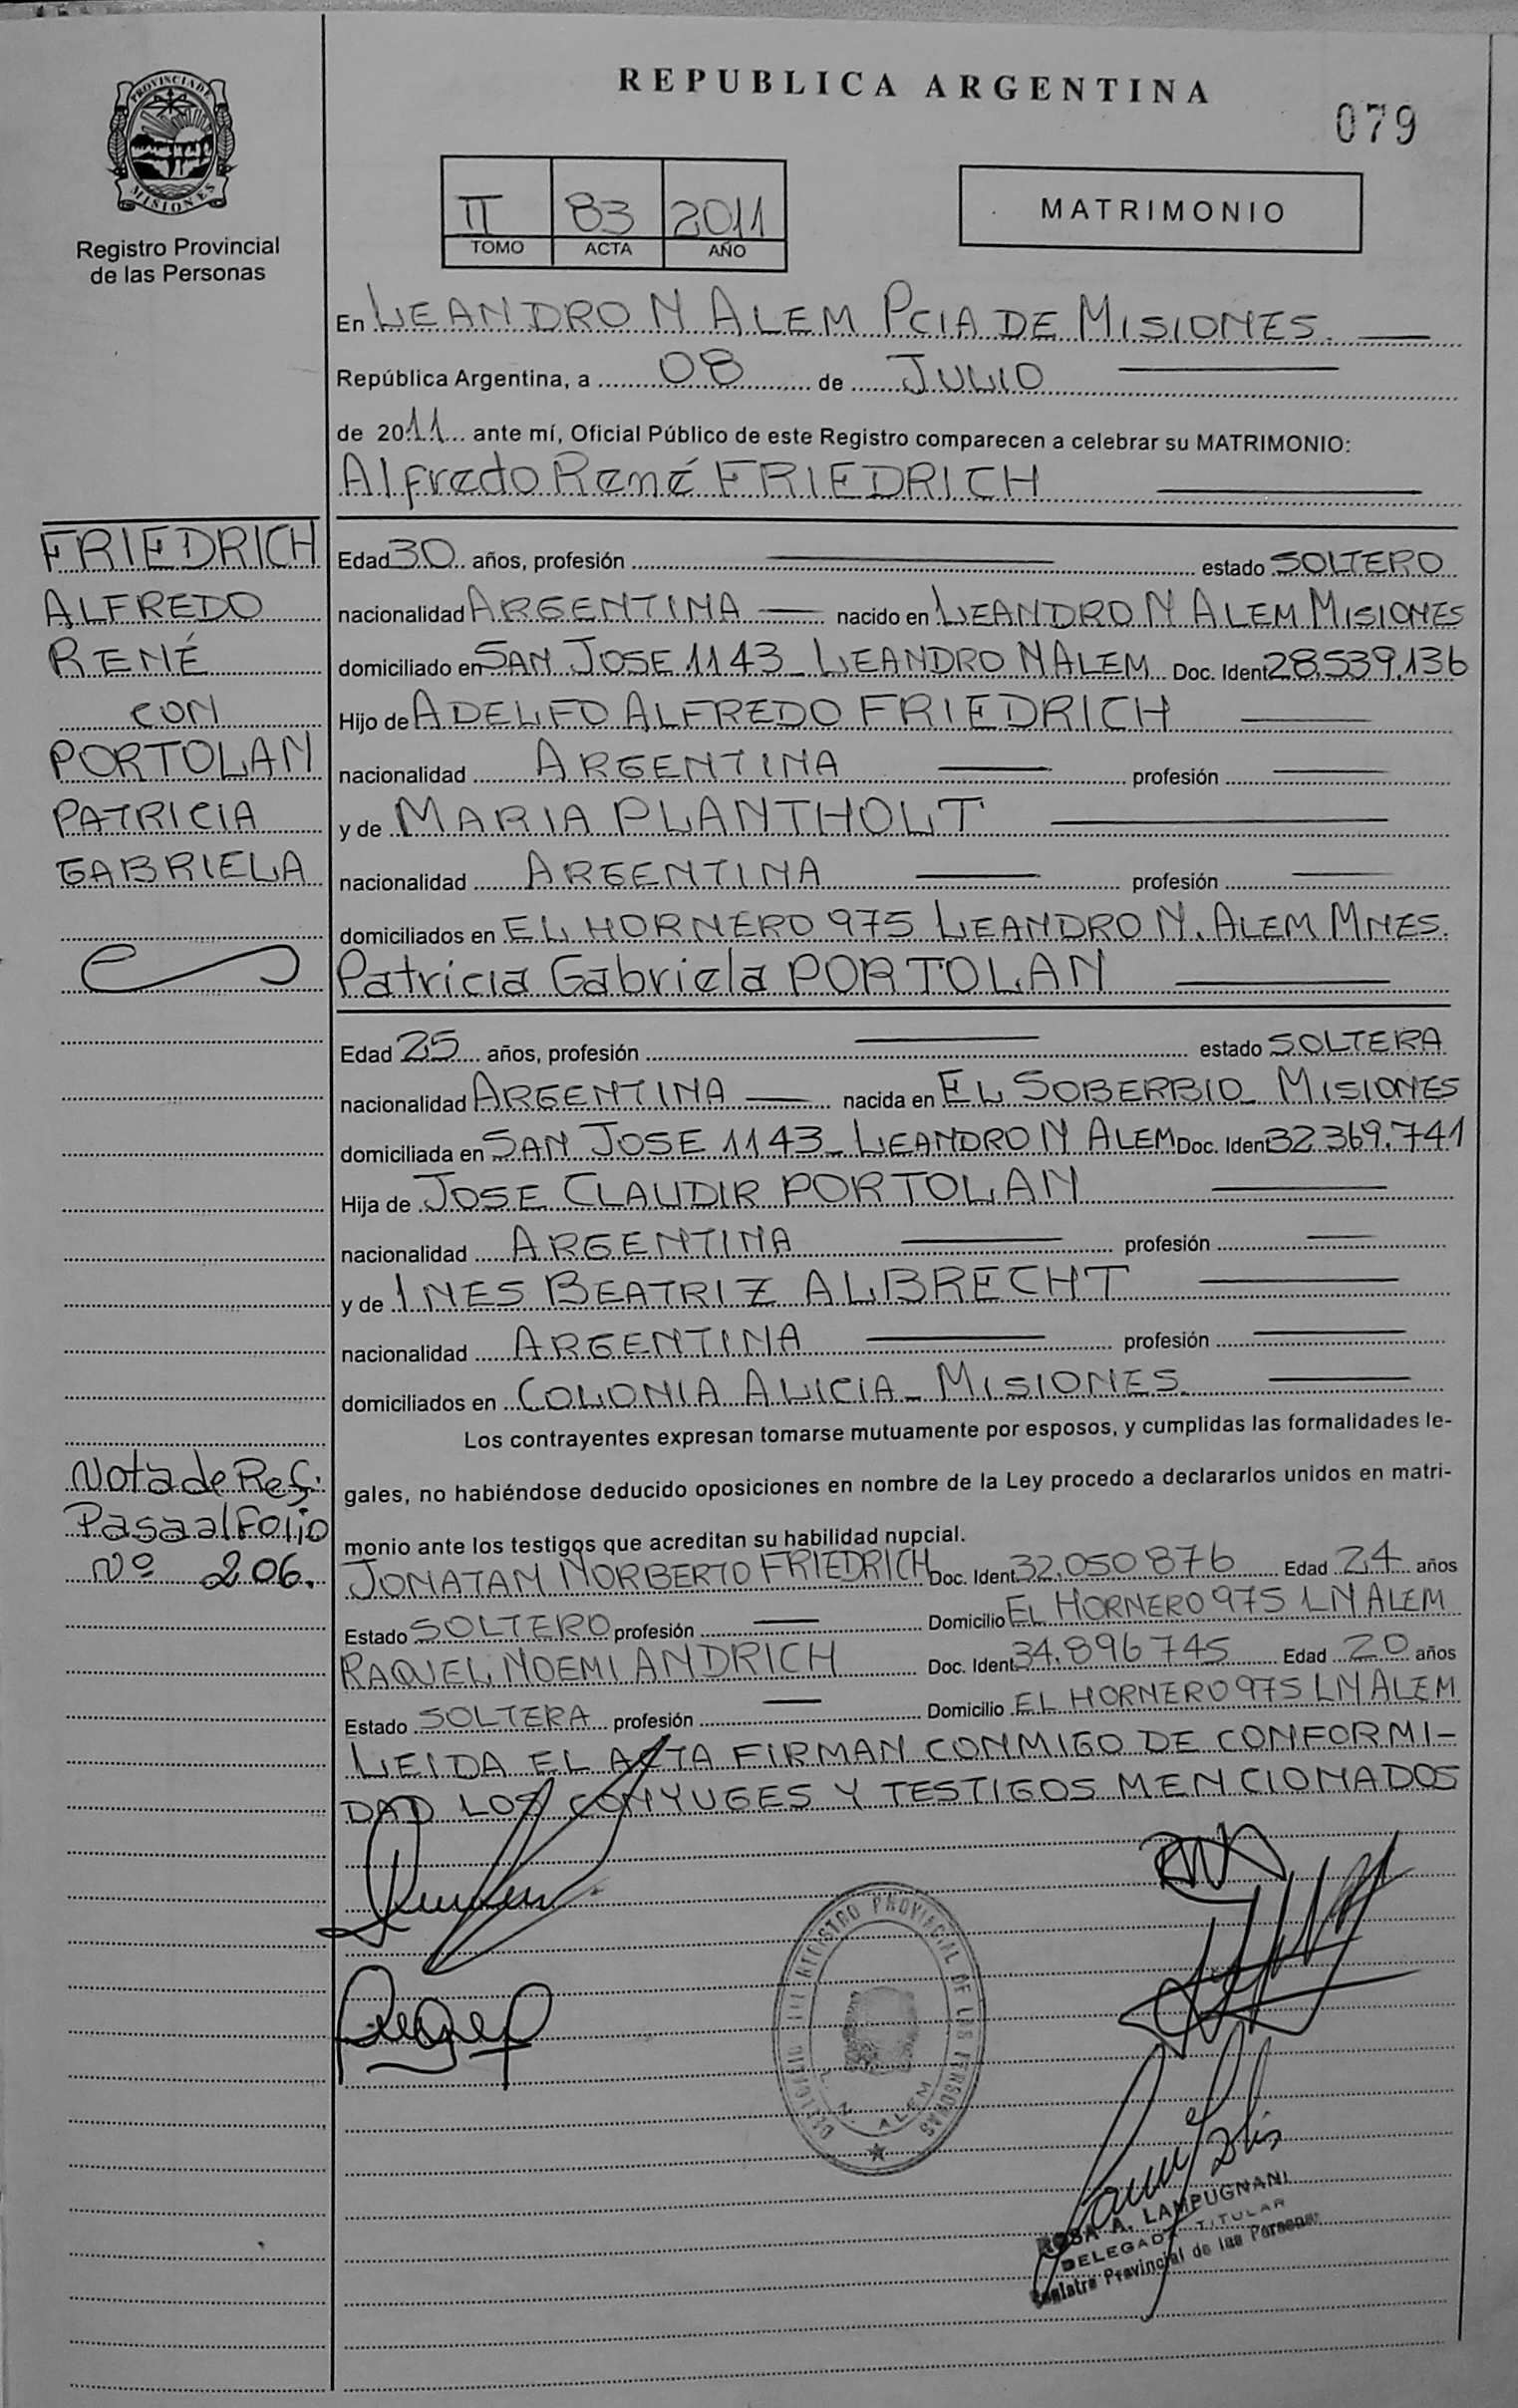 REPUBLICA ARGENTINA
079
PROVINCIA DE
MISIONES
Registro Provincial
de las Personas
II 83 2011
TOMO ACTA AÑO
MATRIMONIO
En LEANDRO N ALEM PCIA DE MISIONES.
República Argentina, a 08 de JULIO
de 2011 ante mí, Oficial Público de este Registro comparecen a celebrar su MATRIMONIO:
Alfredo René FRIEDRICH
FRIEDRICH
ALFREDO
RENÉ
CON
PORTOLAN
PATRICIA
GABRIELA
Edad 30 años, profesión estado SOLTERO
nacionalidad ARGENTINA nacido en LEANDRO N ALEM MISIONES
domiciliado en SAN JOSE 1143_ LEANDRO N ALEM Doc. Ident 28.539.136
Hijo de ADELFO ALFREDO FRIEDRICH
nacionalidad ARGENTINA profesión
y de MARIA PLANTHOLT
nacionalidad ARGENTINA profesión
domiciliados en EL HORNERO 975 LEANDRO N. ALEM MNES.
Patricia Gabriela PORTOLAN
Edad 25 años, profesión estado SOLTERA
nacionalidad ARGENTINA nacida en EL SOBERBIO_ MISIONES
domiciliada en SAN JOSE 1143_ LEANDRO N ALEM Doc. Ident 32.369.741
Hija de JOSE CLAUDIR PORTOLAN
nacionalidad ARGENTINA profesión
y de INES BEATRIZ ALBRECHT
nacionalidad ARGENTINA profesión
domiciliados en COLONIA ALICIA_ MISIONES.
Los contrayentes expresan tomarse mutuamente por esposos, y cumplidas las formalidades le-
gales, no habiéndose deducido oposiciones en nombre de la Ley procedo a declararlos unidos en matri-
monio ante los testigos que acreditan su habilidad nupcial.
Nota de Ref.
Pasa al Folio
Nº 206.
JONATAN NORBERTO FRIEDRICH Doc. Ident 32.050 876 Edad 24 años
Estado SOLTERO profesión Domicilio EL HORNERO 975 LN ALEM
RAQUEL NOEMI ANDRICH Doc. Ident 34.896 745 Edad 20 años
Estado SOLTERA profesión Domicilio EL HORNERO 975 LN ALEM
LEIDA EL ACTA FIRMAN CONMIGO DE CONFORMI-
DAD LOS CONYUGES Y TESTIGOS MENCIONADOS
REGISTRO PROVINCIAL DE LAS PERSONAS
L. N. ALEM
ROSA A. LAMPUGNANI
DELEGADA TITULAR
Registro Provincial de las Personas